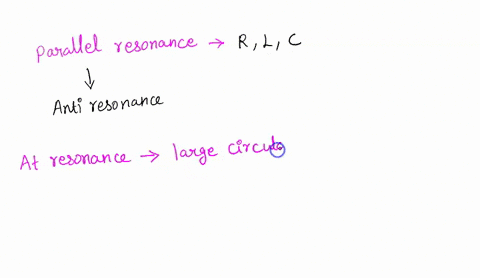 Parallel resonance → R, L, C
↓
Anti resonance
At resonance → large circula